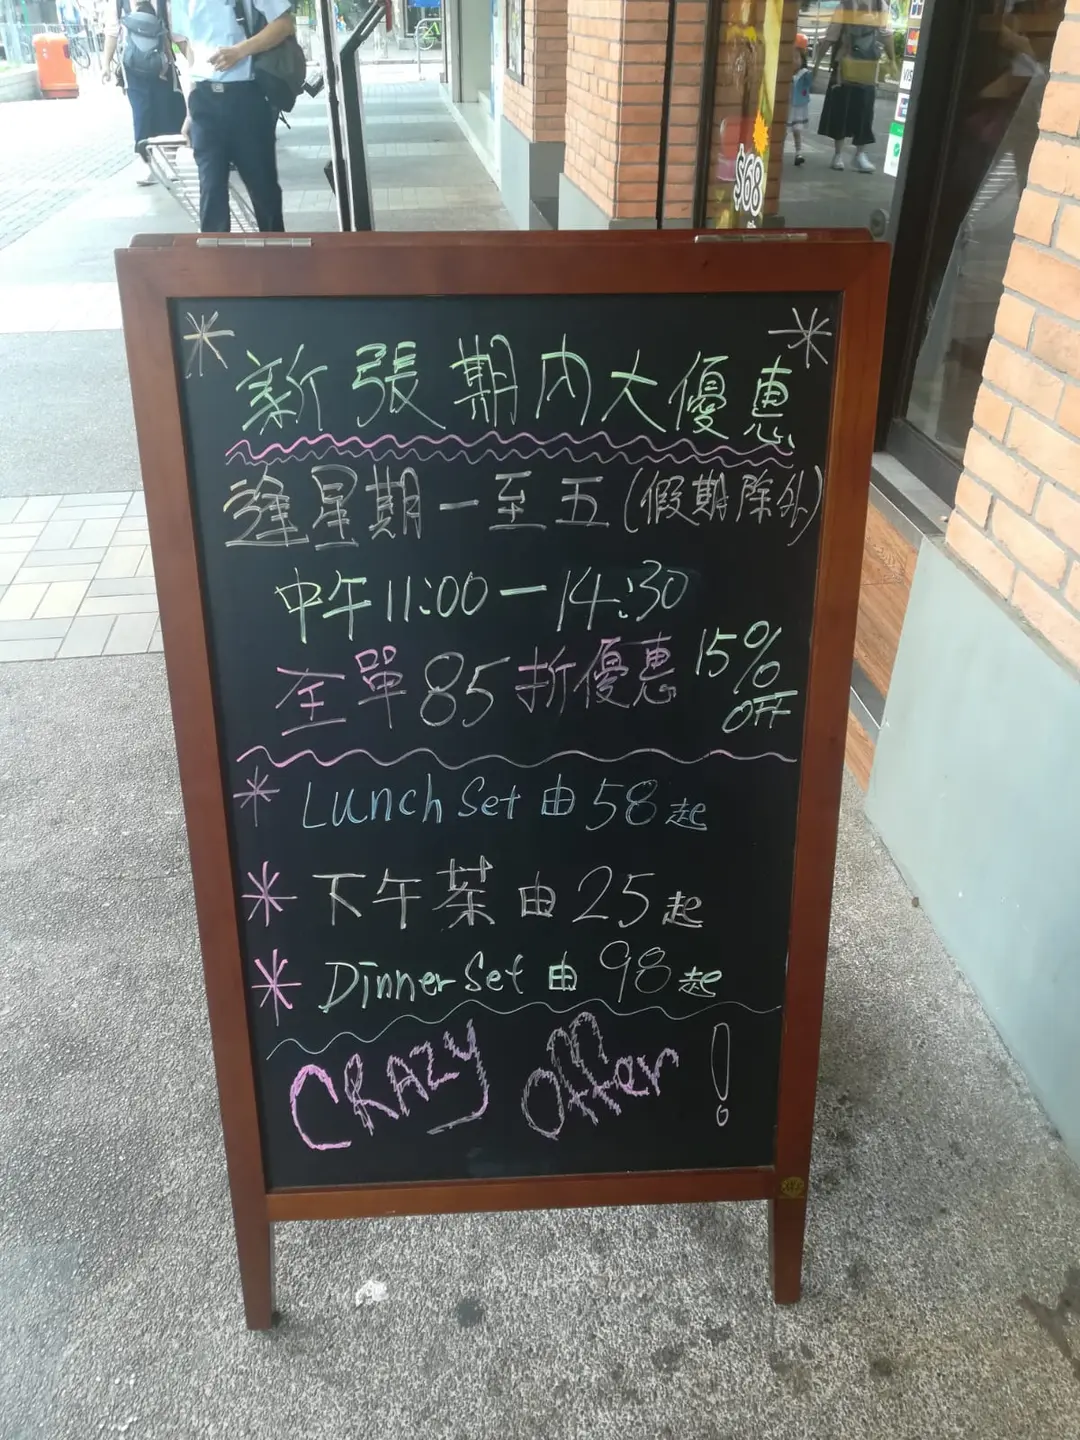 $68
新張期內大優惠
逢星期一至五(假期除外)
中午11:00-14:30
全單85折優惠 15% OFF
* Lunch Set 由58起
* 下午茶由25起
* Dinner Set 由98起
CRAZY Offer!
VISA